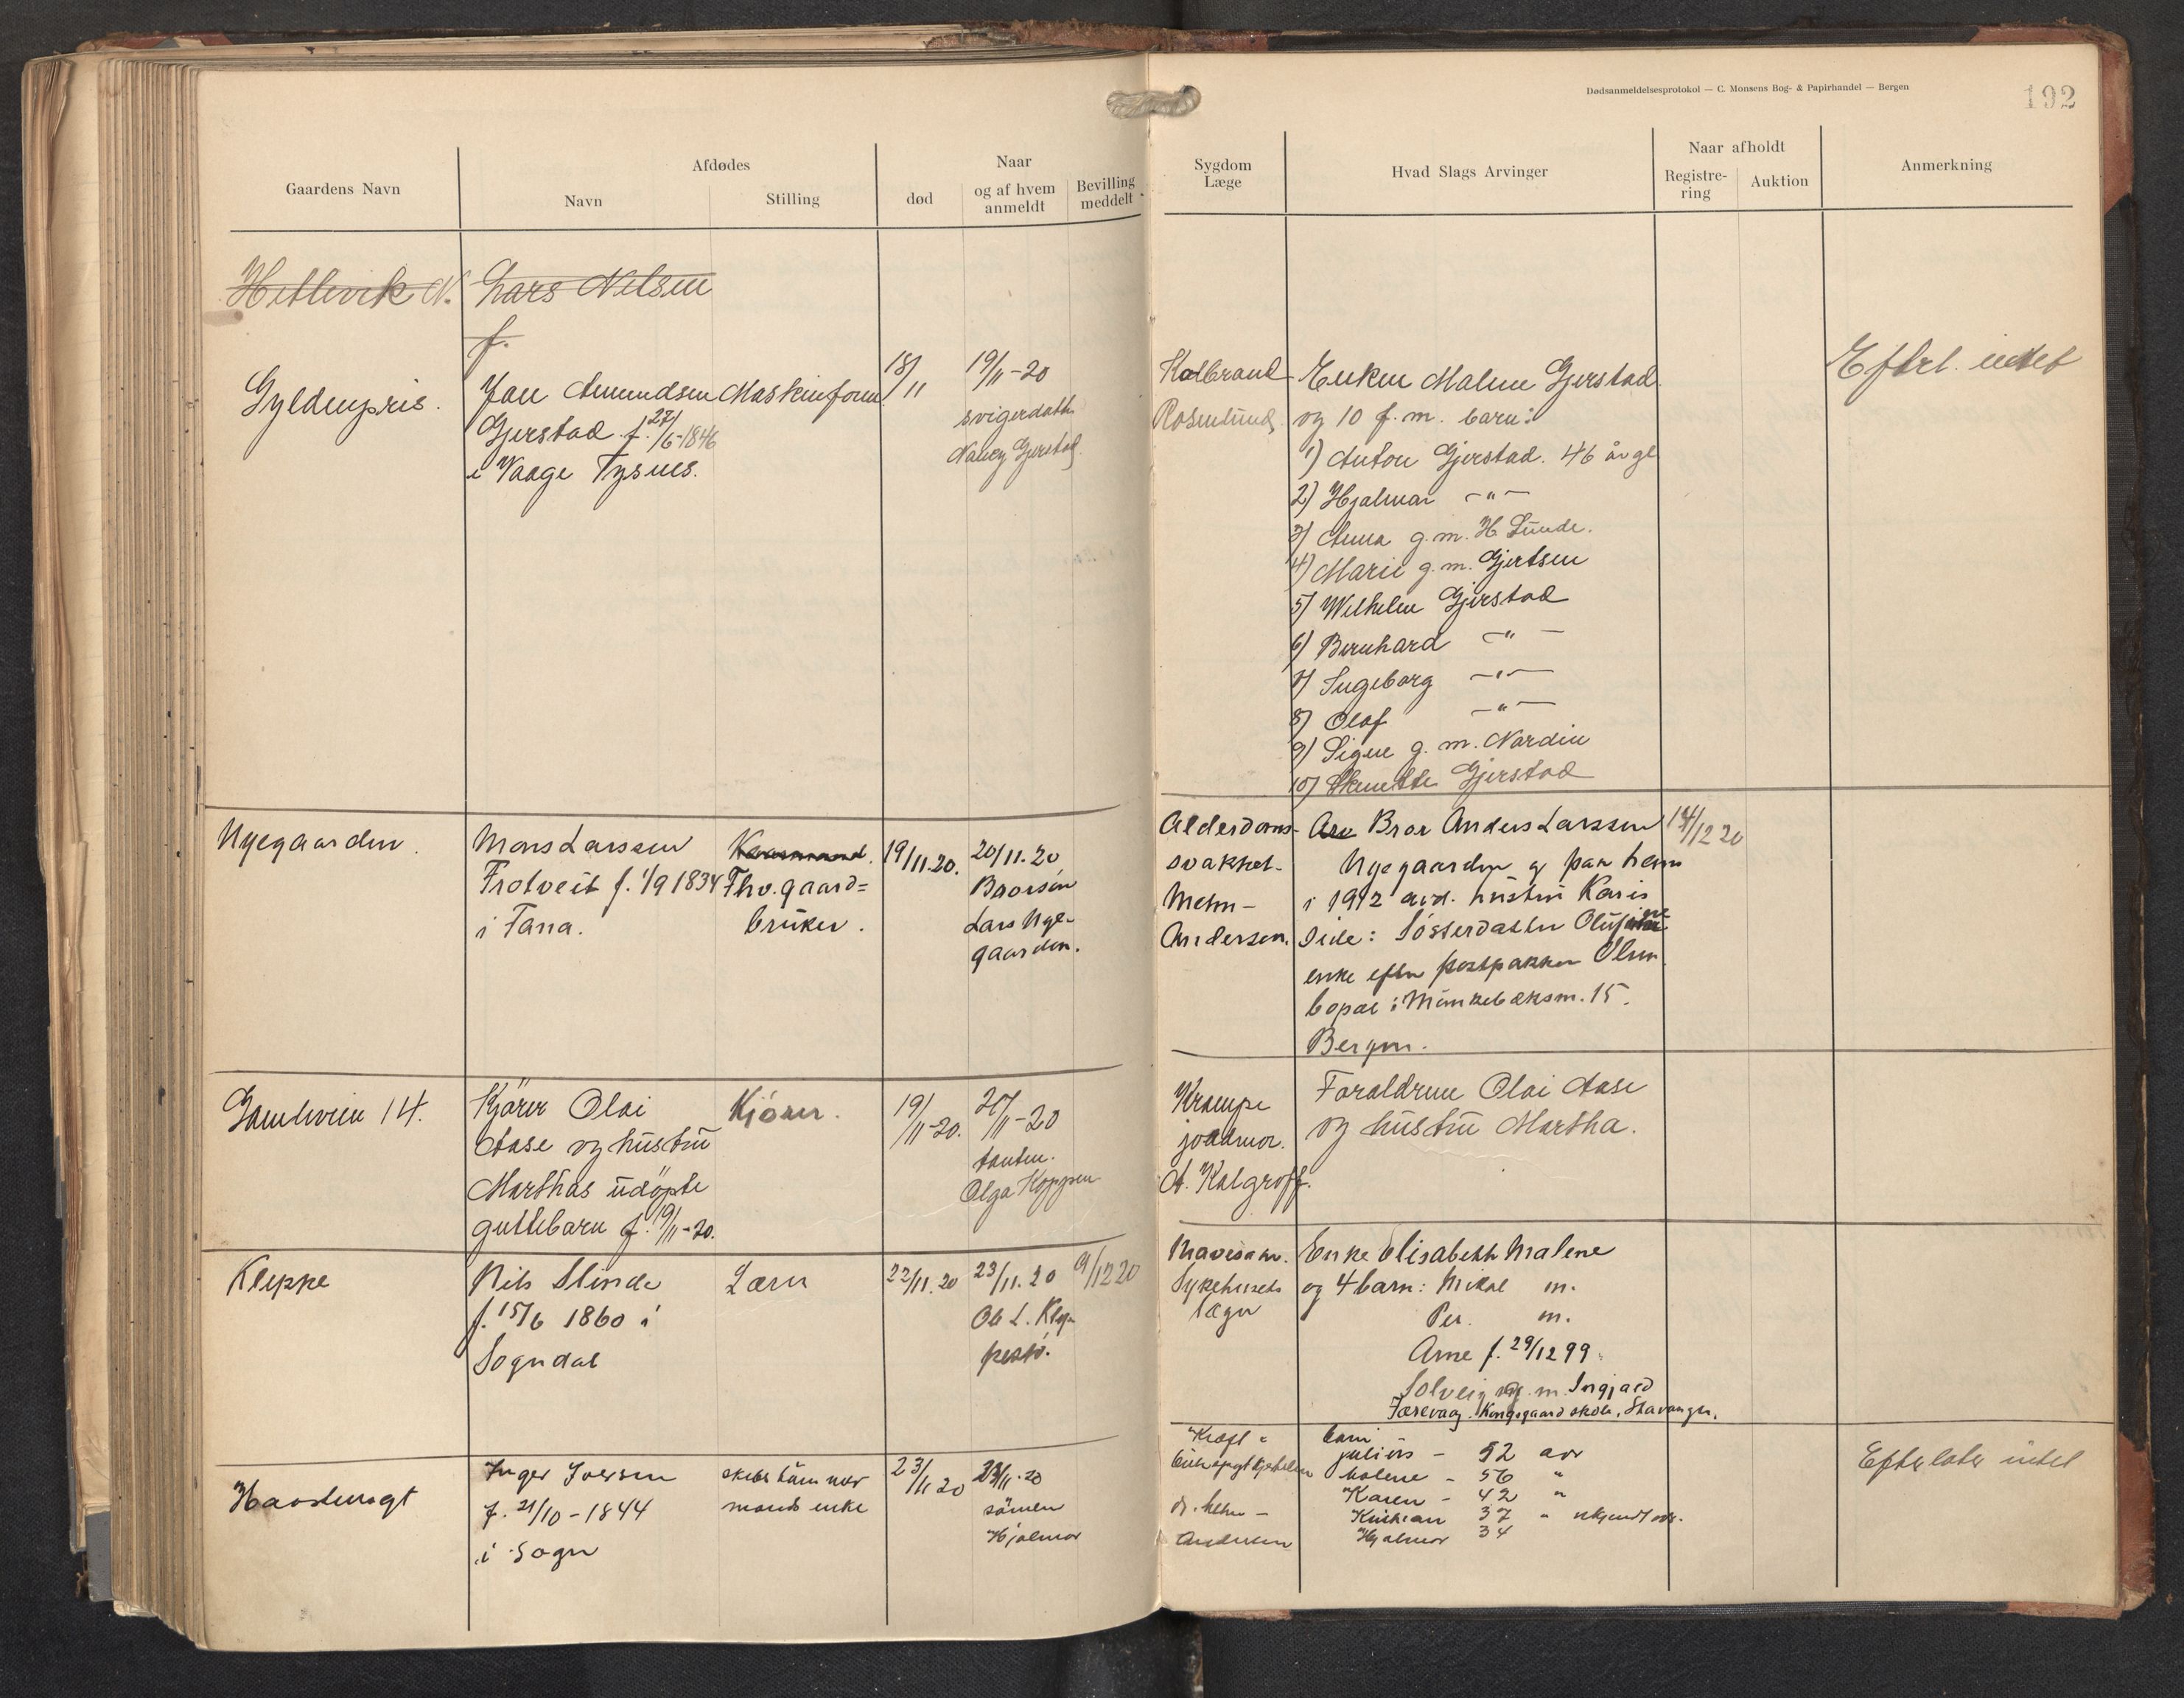 Dødsanmeldelsesprotokol — C. Monsens Bog- & Papirhandel — Bergen
192
Gaardens Navn
Afdødes
Navn
Stilling
Naar
død
og af hvem anmeldt
Bevilling meddelt
Sygdom
Læge
Hvad Slags Arvinger
Naar afholdt
Registre-
ring
Auktion
Anmerkning
Hetlevik N.
Lars Nilsen
f.
Gyldenpris.
Jan Amundsen
Gjerstad f. 27/6-1846
i Vaage Tysnes.
Maskinform.
18/11
19/11-20
svigerdatter
Nancy Gjerstad
Koldbrand
Rosenlund,
Enken Malene Gjerstad
og 10 f.m. barn:
1) Anton Gjerstad. 46 år gl
2) Hjalmar -"-
3) Anna g.m. H Lunde.
4) Marie g.m. Gjertsen
5) Wilhelm Gjerstad
6) Bernhard -"-
7) Ingeborg -"-
8) Olaf -"-
9) Signe g.m. Nordin
10) Gjerstad
Efterl. intet
Nyegaarden.
Mons Larssen
Frotveit f. 1/9 1834
i Fana.
Fhv. gaard=
bruker.
19/11.20.
20/11.20
Brorsøn
Lars Nye-
gaarden.
Alderdoms-
svakhet.
Mohn-
Andersen.
Arv Bror Anders Larssen
Nyegaarden og paa hans
i 1912 avd. hustru Karis
side: Søsterdatter
enke efter postpakker Olsen
bopæl: Munkebæksm. 15.
Bergen.
14/12 20
Gamleveien 14.
Kjører Olai
Aase og hustru
Marthas udøpte
guttebarn f. 19/11-20.
Kjører.
19/11-20.
20/11-20
tanten.
Olga Koppen
Krampe
jordmor.
A. Kalgraff.
Forældrene Olai Aase
og hustru Martha.
Kleppe
Nils Slinde
f. 15/6 1860 i
Sogndal
Lærer
22/11.20
23/11.20
Ole L. Klep-
pestø.
9/12 20
Mavesaar.
Sykehusets
læger
Enke Elisabeth Malene
og 4 barn: Mikal m.
Per. m.
Arne f. 29/12 99.
Solveig m. Ingjald
Færevaag. Kongsgaard skole, Stavanger.
Haastenagt
Inger Iversen
f. 21/10-1844
i Sogn
skibstømmer
mands enke
23/11 20
23/11.20
sønnen
Hjalmar
Kræft i
dr. Mohn-
Andersen
barn
Julius - 52 aar
Malene - 56 "
Karen - 42 "
Kristian 37 "
Hjalmar 34
Efterlater intet